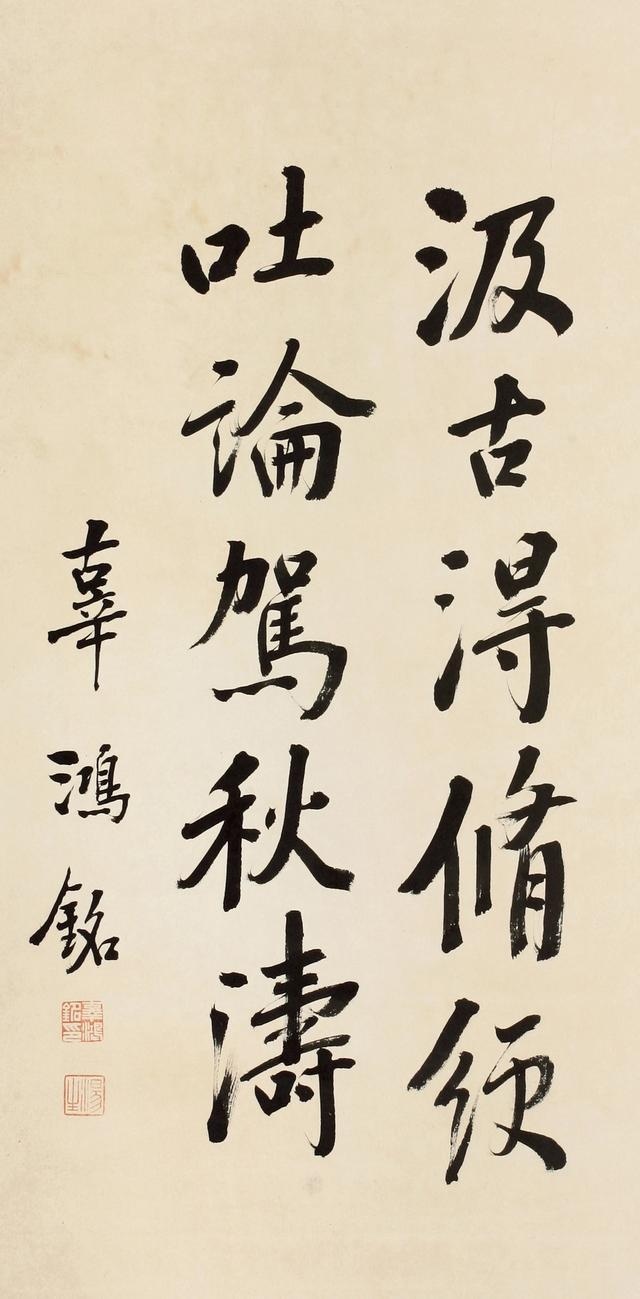 汲古得脩綆
吐論駕秋濤
辜鴻銘
辜鴻銘印
湯生